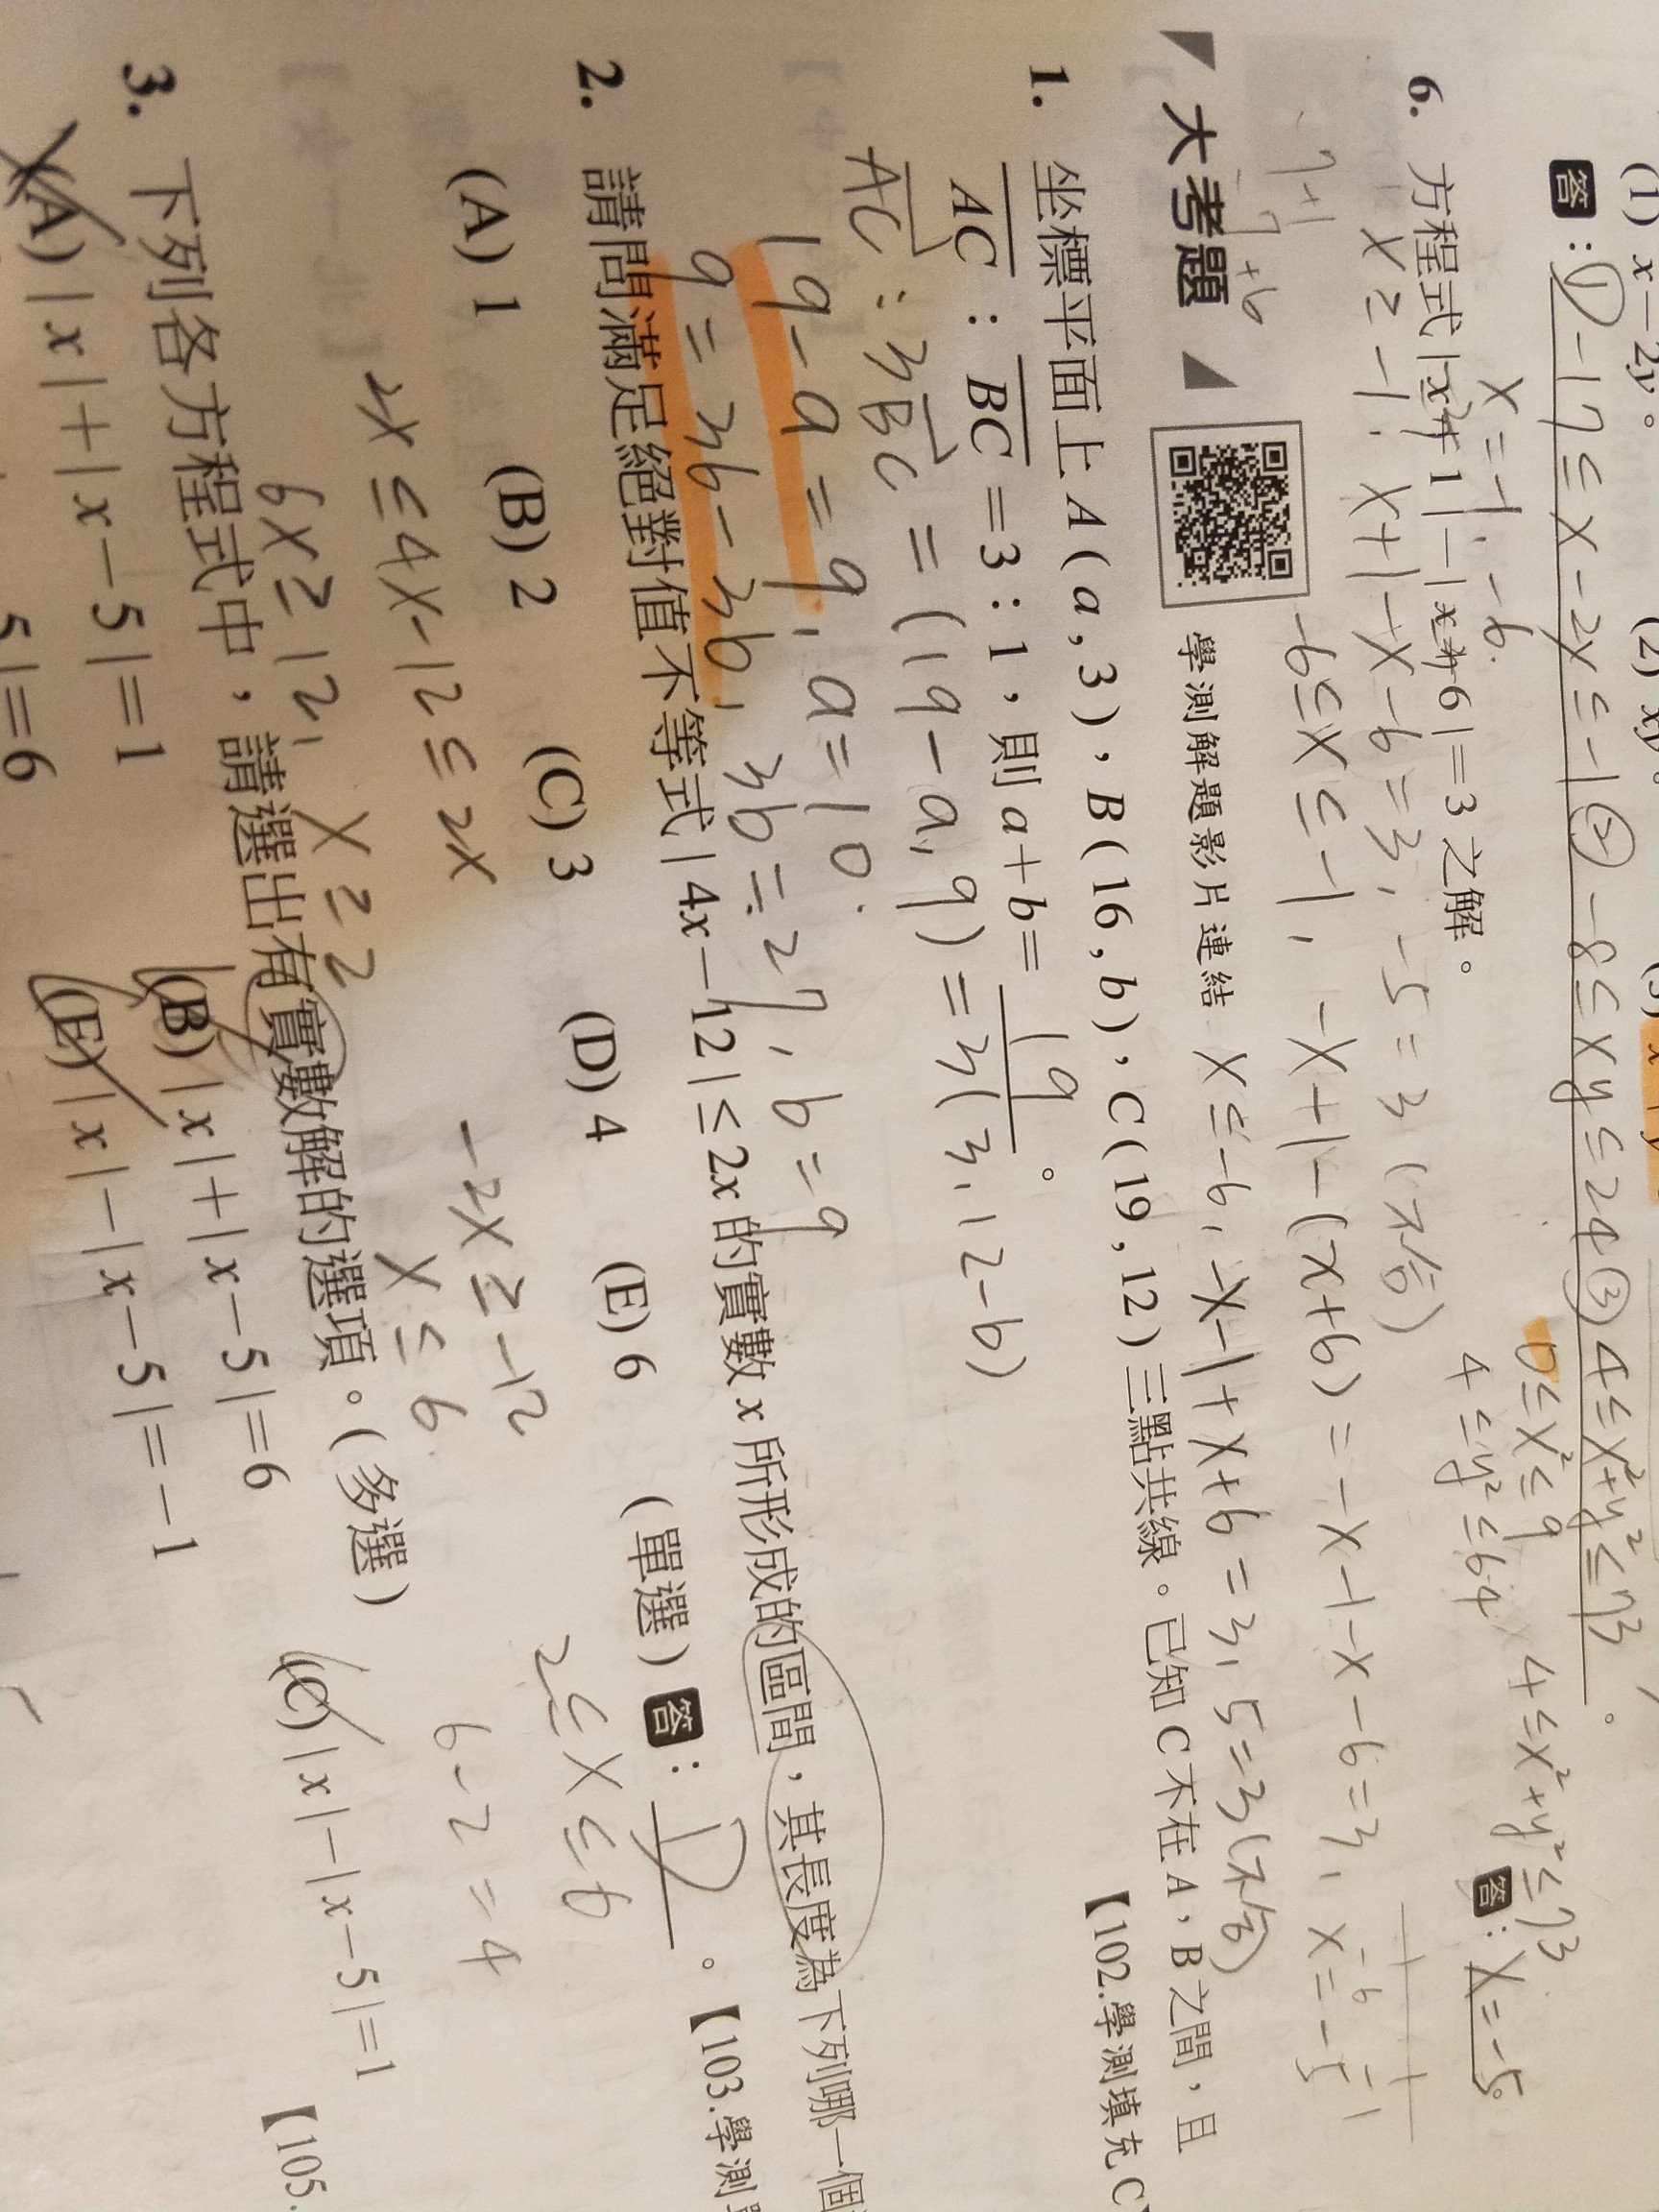 (1) x－2y。 (2) xy。
答：① －17 ≤ x－2y ≤ －1 ② －8 ≤ xy ≤ 24 ③ 4 ≤ x²+y² ≤ 73 。
0 ≤ x² ≤ 9
4 ≤ y² ≤ 64
4 ≤ x²+y² ≤ 73
x = －1, －6.
6. 方程式 |x+1|－|x+6|=3 之解。
答：x = －5.
x ≥ －1, x+1－x－6 = 3, －5 = 3 (不合)
－6 ≤ x ≤ －1, －x+1－(x+6) = －x－1－x－6 = 3, x = －5
－6 －1
大考題
學測解題影片連結
x ≤ －6, －x－1+x+6 = 3, 5 = 3 (不合)
1. 坐標平面上 A(a,3)，B(16,b)，C(19,12) 三點共線。已知 C 不在 A，B 之間，且
AC：BC=3：1，則 a+b= 19 。
【102.學測填充
AC : 3BC = (19－a, 9) = 3(3, 12－b)
19－a = 9, a = 10.
9 = 36－3b, 3b = 27, b = 9
2. 請問滿足絕對值不等式 |4x－12|≤2x 的實數 x 所形成的區間，其長度為下列哪一個
(A) 1 (B) 2 (C) 3 (D) 4 (E) 6 (單選) 答： D 。【103.學測
2x ≤ 4x－12 ≤ 2x
－2x ≥ －12
x ≤ 6
6x ≥ 12, x ≥ 2
2 ≤ x ≤ 6
6－2 = 4
3. 下列各方程式中，請選出有實數解的選項。(多選)
【105.
(A) |x|+|x－5|=1 (B) |x|+|x－5|=6 (C) |x|－|x－5|=1
5|=6 (E) |x|－|x－5|=－1